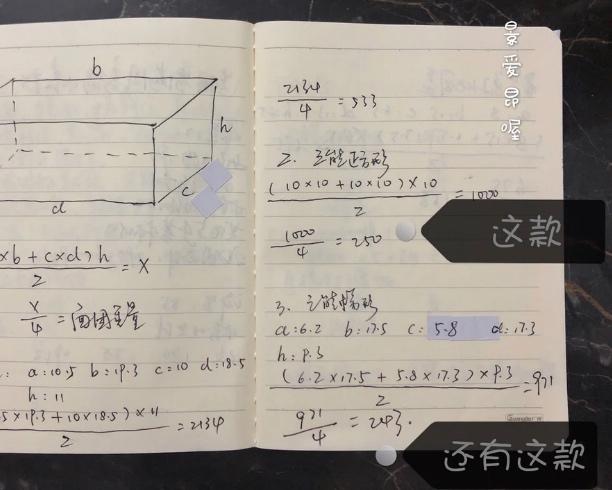 b
h
c
d
xb + c×d)h / 2 = X
X/4 = 面团重量
: a:10.5 b:19.3 c=10 d:18.5
h:11
5×19.3+10×18.5)×11 / 2 = 2134
2134/4 = 533
2.
(10×10+10×10)×10 / 2 = 1000
1000/4 = 250
3.
a:6.2 b:17.5 c:5.8 d:17.3
h:9.3
(6.2×17.5+5.8×17.3)×9.3 / 2 = 971
971/4 = 243.
景爱昂喔
这款
还有这款